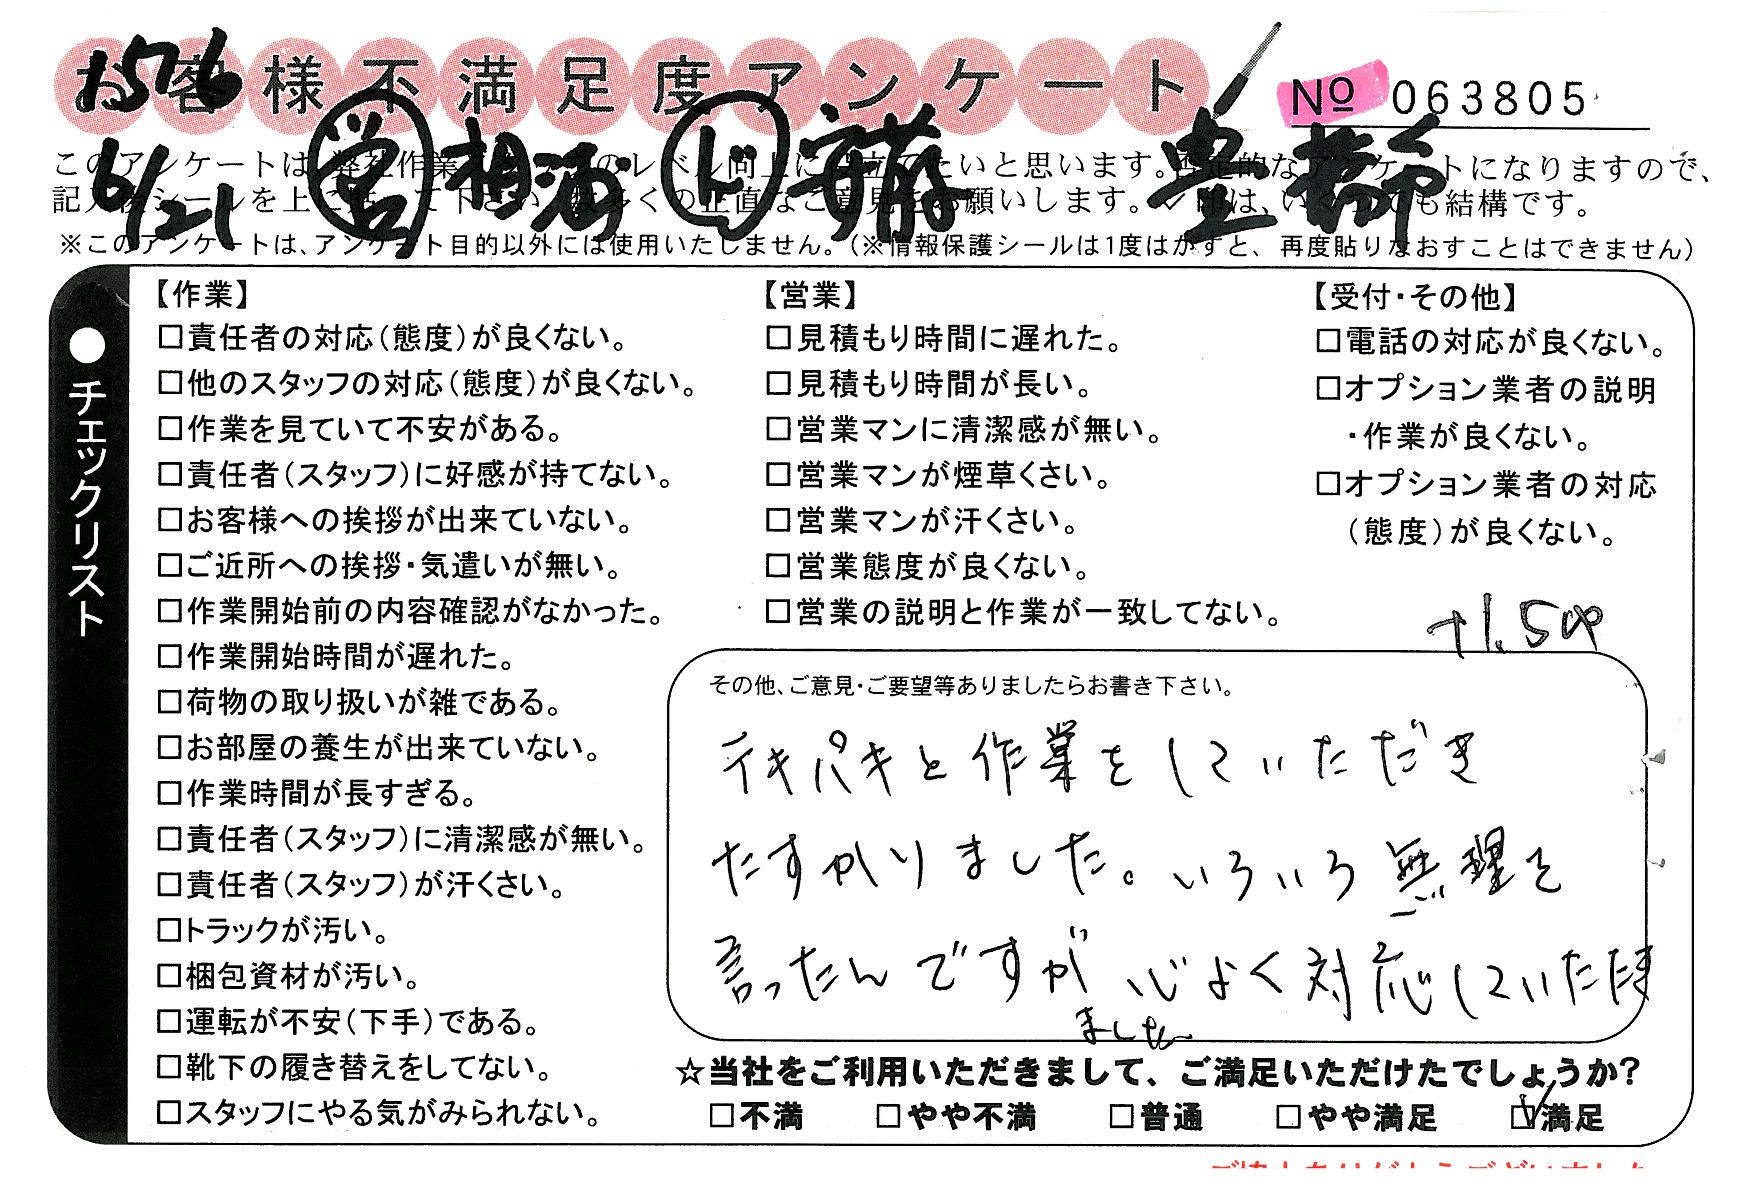 お客様不満足度アンケート
№ 063805
1576
6/21 営 相澤 ド 齊藤
このアンケートは、弊社作業のレベル向上に役立てたいと思います。否定的なアンケートになりますので、
記入後シールを上に貼って下さい。数多くの正直なご意見をお願いします。✓印は、いくつでも結構です。
※このアンケートは、アンケート目的以外には使用いたしません。（※情報保護シールは1度はがすと、再度貼りなおすことはできません）
●チェックリスト
【作業】
□責任者の対応（態度）が良くない。
□他のスタッフの対応（態度）が良くない。
□作業を見ていて不安がある。
□責任者（スタッフ）に好感が持てない。
□お客様への挨拶が出来ていない。
□ご近所への挨拶・気遣いが無い。
□作業開始前の内容確認がなかった。
□作業開始時間が遅れた。
□荷物の取り扱いが雑である。
□お部屋の養生が出来ていない。
□作業時間が長すぎる。
□責任者（スタッフ）に清潔感が無い。
□責任者（スタッフ）が汗くさい。
□トラックが汚い。
□梱包資材が汚い。
□運転が不安（下手）である。
□靴下の履き替えをしてない。
□スタッフにやる気がみられない。
【営業】
□見積もり時間に遅れた。
□見積もり時間が長い。
□営業マンに清潔感が無い。
□営業マンが煙草くさい。
□営業マンが汗くさい。
□営業態度が良くない。
□営業の説明と作業が一致してない。
【受付・その他】
□電話の対応が良くない。
□オプション業者の説明
・作業が良くない。
□オプション業者の対応
（態度）が良くない。
+1.5
その他、ご意見・ご要望等ありましたらお書き下さい。
テキパキと作業をしていただき
たすかりました。いろいろご無理を
言ったんですが心よく対応していただき
ました
☆当社をご利用いただきまして、ご満足いただけたでしょうか?
□不満 □やや不満 □普通 □やや満足 ☑満足
ご協力ありがとうございました